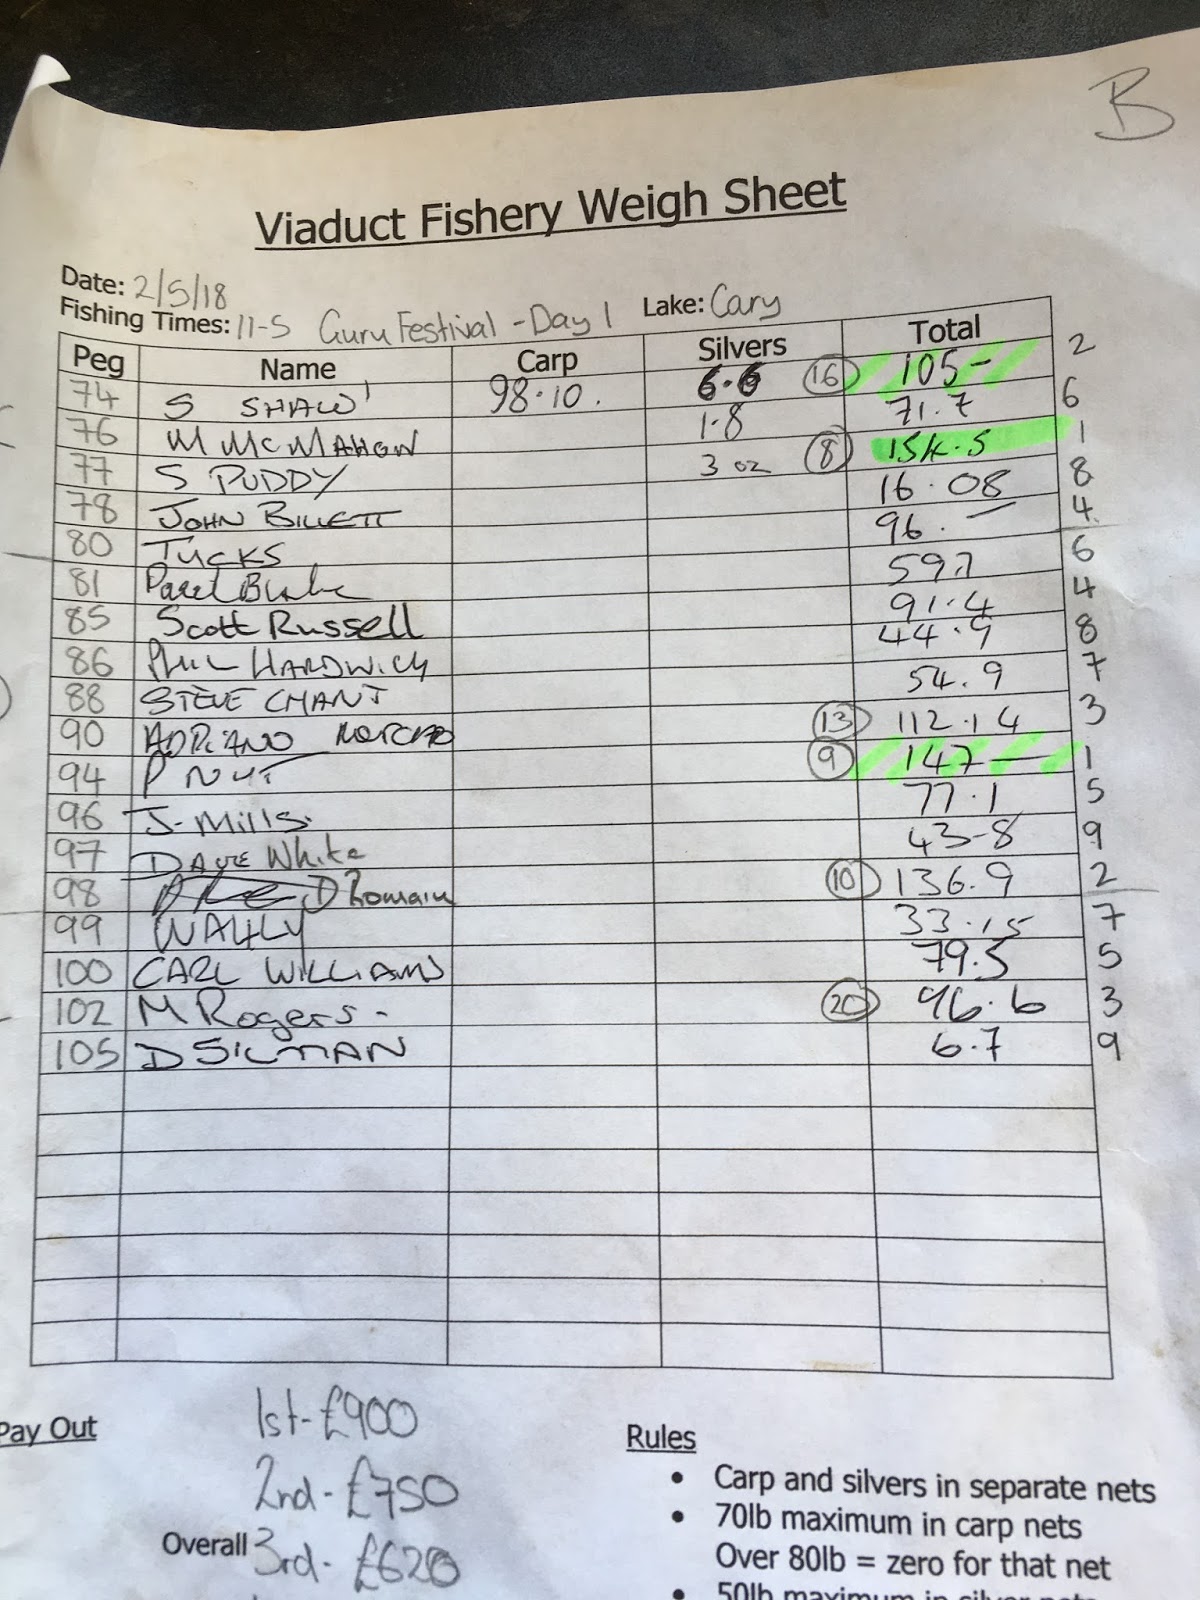 B
Viaduct Fishery Weigh Sheet
Date: 2/5/18
Fishing Times: 11-5 Guru Festival - Day 1 Lake: Cary
Peg Name Carp Silvers Total
74 S SHAW 98.10. 6.6 16 105- 2
76 M MCMAHON 1-8 71.7 6
77 S PUDDY 3 oz 8 154.5 1
78 JOHN BILLETT 16.08 8
80 TUCKS 96. — 4
81 Blake 59.7 6
85 Scott Russell 91.4 4
86 PHIL HARDWICK 44.9 8
88 STEVE CHANT 54.9 7
90 ADRIANO 13 112.14 3
94 P NUT 9 147- 1
96 J-Mills. 77.1 5
97 DAVE White 43-8 9
98 D Romain 10 136.9 2
99 33.15 7
100 CARL WILLIAMS 79.5 5
102 M Rogers- 20 96.6 3
105 D SILMAN 6.7 9
Pay Out
1st-£900
2nd-£750
Overall 3rd-£620
Rules
• Carp and silvers in separate nets
• 70lb maximum in carp nets
Over 80lb = zero for that net
• 50lb maximum in silver nets